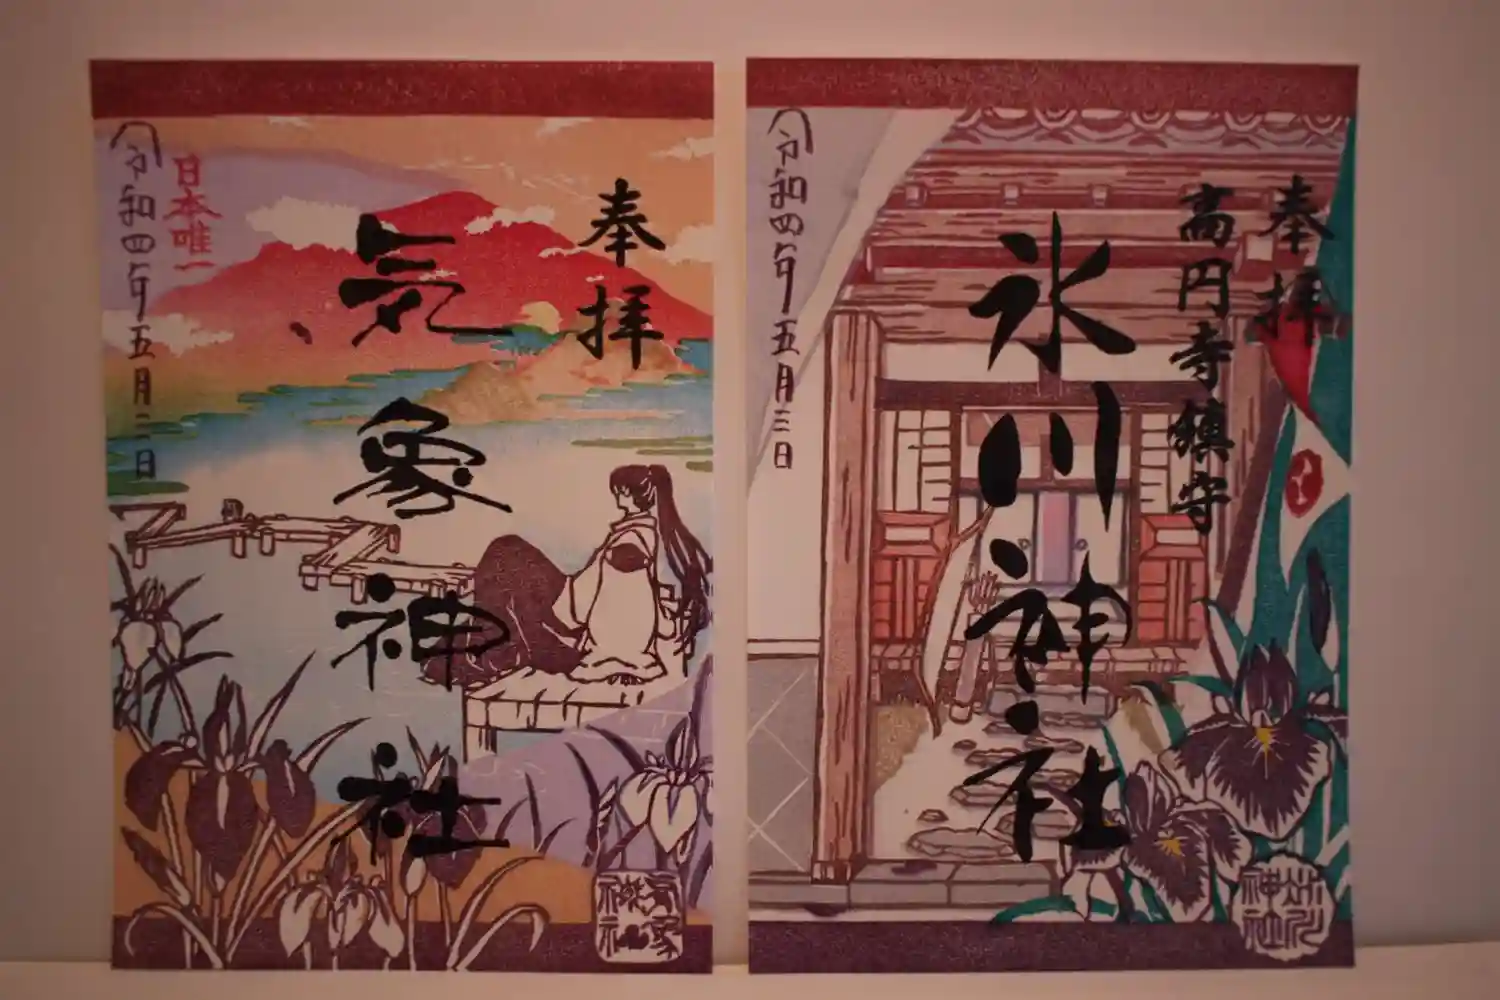 奉拝
気象神社
日本唯一
令和四年五月二日
奉拝
高円寺鎮守
氷川神社
令和四年五月三日
氷川
神社